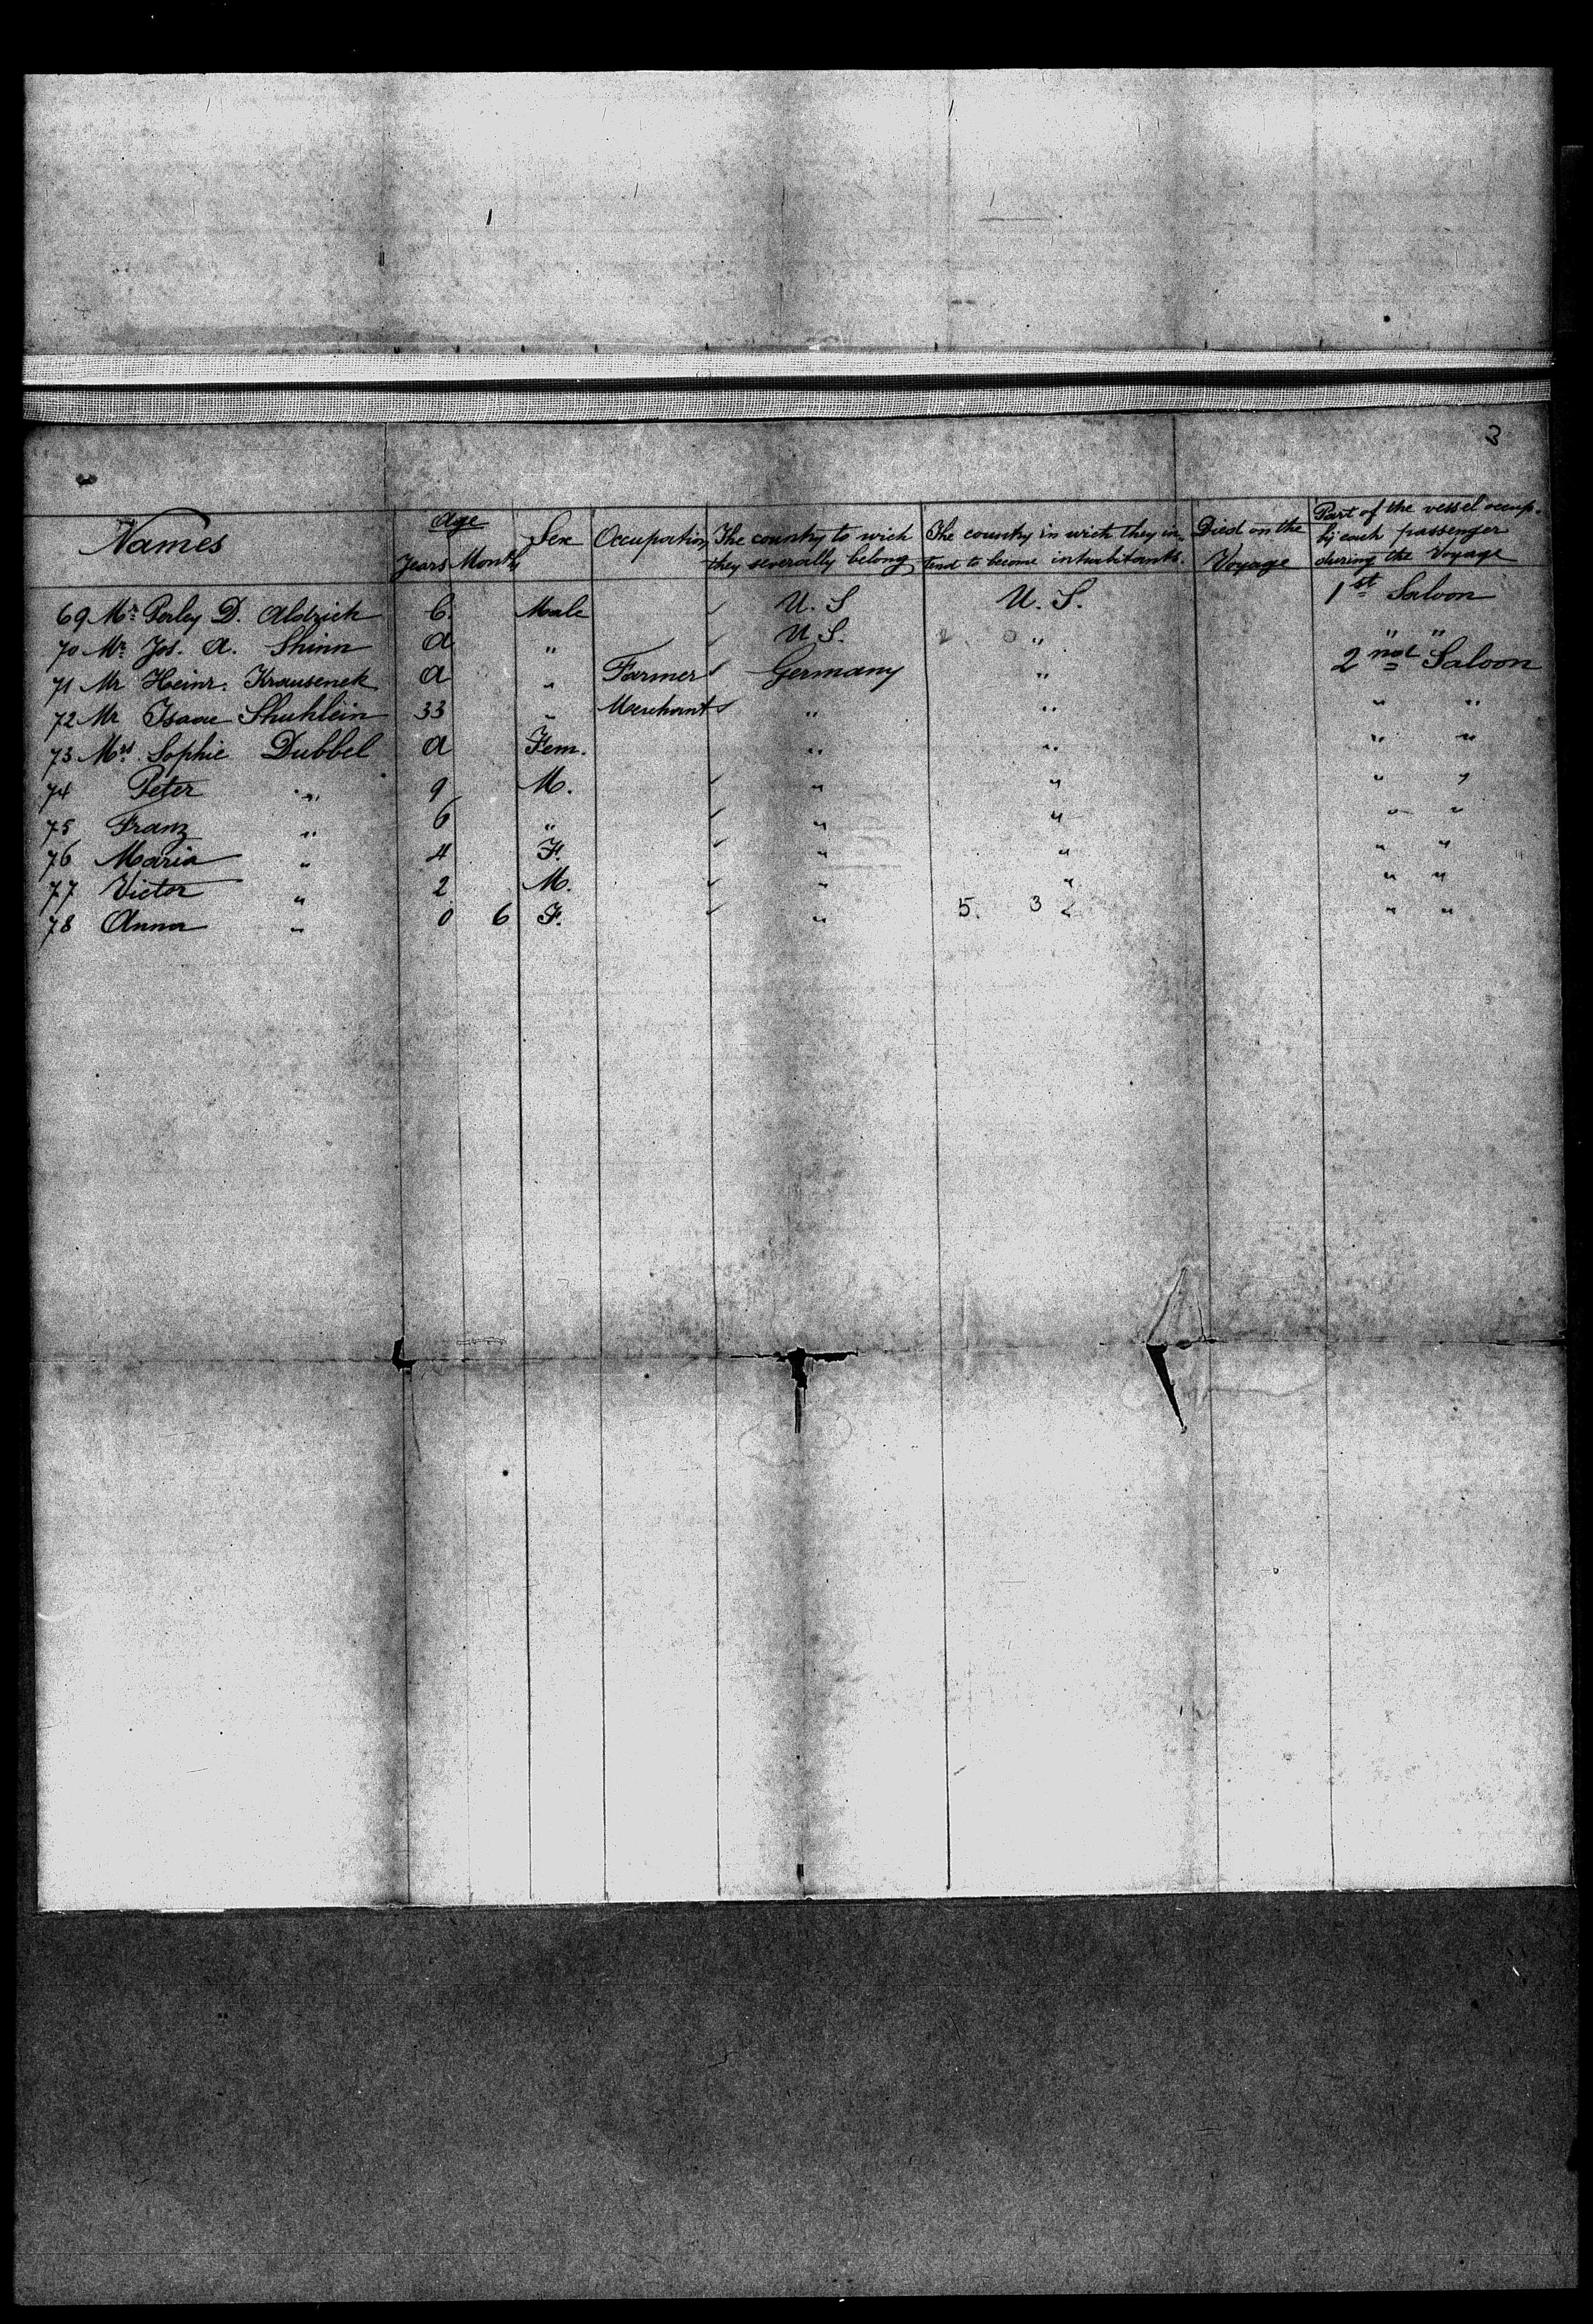 3
Names Age Sex Occupation The country to wich The country in wich they in- Died on the Part of the vessel occup.
Years Month they severally belong tend to become inhabitants. Voyage by each passenger
during the Voyage
69 Mr Perley D. Aldrich Male U. S U. S. 1st Saloon
70 Mr Jos. A. Shinn a " U. S. " " "
71 Mr Heinr. Krausenek a " Farmer Germany " 2nd Saloon
72 Mr Isaac Shuhlein 33 " Merchant " " " "
73 Mrs Sophie Dubbel a Fem. " " " "
74 Peter " 9 M. " " " "
75 Franz " 6 " " " " "
76 Maria " 4 F. " " " "
77 Victor " 2 M. " " " "
78 Anna " 0 6 F. " 5. 3 " "